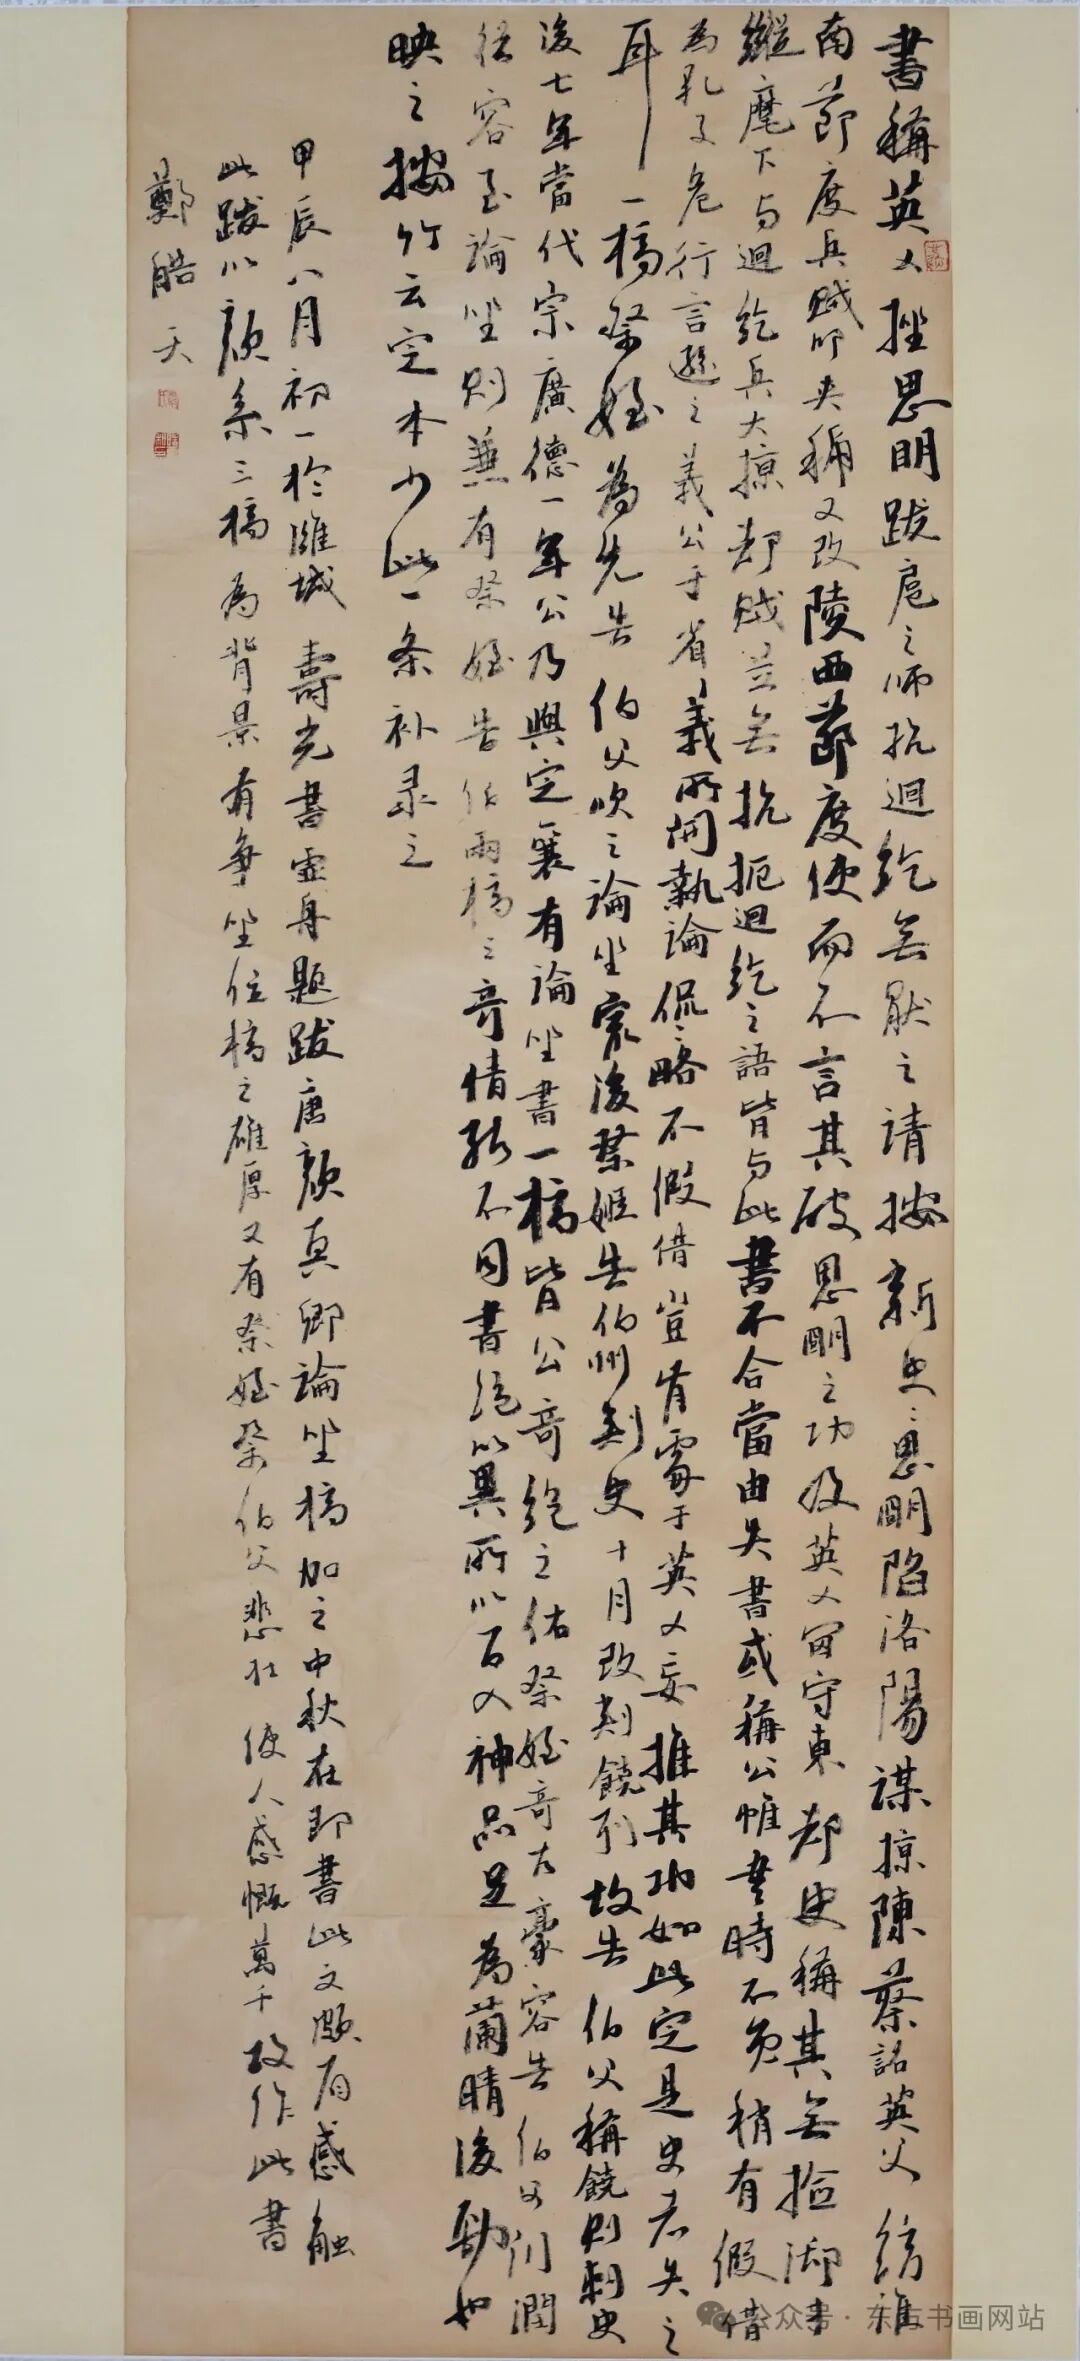 書稱英乂挫思明跋扈之師抗迴紇無厭之請按新史思明陷洛陽謀掠陳蔡詔英乂統淮
南節度兵賊叩夾稱又改陵西節度使而不言其破思明之功及英乂留守東都史稱其無撿御
縱麾下与迴紇兵大掠却賊並無抗扼迴紇之語皆与此書不合當由失書或稱公惟書時不免稍有假借
為孔子危行言遜之義公于省義所関執論侃侃略不假借豈肯處于英乂妄推其功如此定是史者失之
耳一稿祭姪為先告伯父次之論坐最後祭姪告伯州刺史十月改刺饒州故告伯父稱饒州刺史
後七年當代宗廣德一年公乃與定襄有論坐書一稿皆公奇絕之佑祭姪奇古豪容告伯父則潤
容至論坐則兼有祭姪告伯兩稿之奇情狀不同書絕以異所以百入神品足為蘭晴後勁也
映之搨竹云定本少此一条补录之
甲辰八月初一於濰城壽光書虚舟題跋唐顏真卿論坐稿加之中秋在即書此文颇有感触
此跋以顏系三稿為背景有爭坐位稿之雄厚又有祭姪祭伯父悲壮使人感慨萬千故作此書
鄭皓天
公众号·东方书画网站